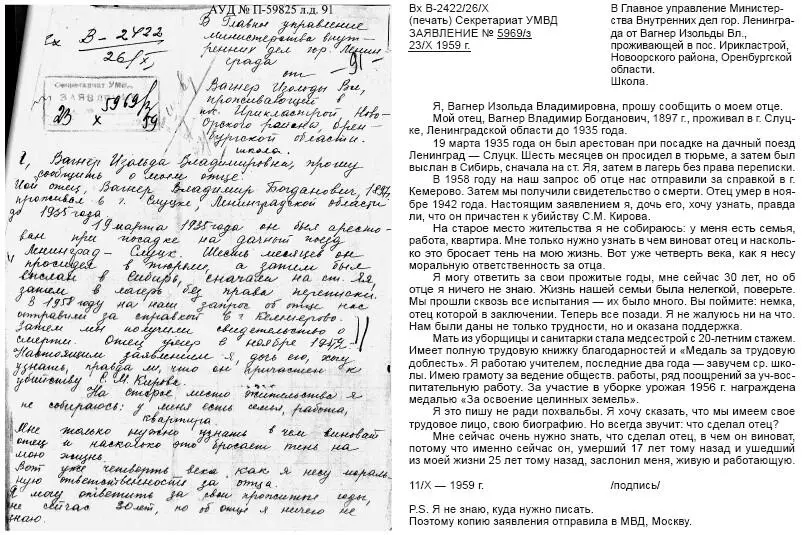 АУД № П-59825 л.д. 91
Вх В-2422
26/X
В Главное управление
министерства внут-
ренних дел гор. Ленин-
града
-91-
от
Вагнер Изольды Вл,
проживающей в
пос. Ирикластрой Ново-
орского района, Орен-
бургской области.
школа.
Секретариат УМВД
ЗАЯВЛЕНИЕ
№ 5969/з
23 X 59
Я, Вагнер Изольда Владимировна, прошу
сообщить о моем отце.
Мой отец, Вагнер Владимир Богданович, 1897,
проживал в г. Слуцке, Ленинградской области
до 1935 года.
19 марта 1935 года он был аресто-
ван при посадке на дачный поезд
Ленинград – Слуцк. Шесть месяцев он
просидел в тюрьме, а затем был
выслан в Сибирь, сначала на ст. Яя,
затем в лагерь без права переписки.
В 1958 году на наш запрос об отце нас
отправили за справкой в г. Кемерово.
Затем мы получили свидетельство о
смерти. Отец умер в ноябре 1942
Настоящим заявлением я, дочь его, хочу
узнать, правда ли, что он причастен к
убийству С. М. Кирова.
На старое место жительства я
не собираюсь: у меня есть семья, работа,
квартира
Мне только нужно узнать в чем виноват
отец и насколько это бросает тень на
мою жизнь.
Вот уже четверть века, как я несу мораль-
ную ответственность за отца.
Я могу ответить за свои прожитые годы,
мне сейчас 30 лет, но об отце я ничего не
знаю.
Вх В-2422/26/X
(печать) Секретариат УМВД
ЗАЯВЛЕНИЕ № 5969/з
23/X 1959 г.
В Главное управление Министер-
ства Внутренних дел гор. Ленингра-
да от Вагнер Изольды Вл.,
проживающей в пос. Ирикластрой,
Новоорского района, Оренбургской
области.
Школа.
Я, Вагнер Изольда Владимировна, прошу сообщить о моем отце.
Мой отец, Вагнер Владимир Богданович, 1897 г., проживал в г. Слуц-
ке, Ленинградской области до 1935 года.
19 марта 1935 года он был арестован при посадке на дачный поезд
Ленинград — Слуцк. Шесть месяцев он просидел в тюрьме, а затем был
выслан в Сибирь, сначала на ст. Яя, затем в лагерь без права переписки.
В 1958 году на наш запрос об отце нас отправили за справкой в г.
Кемерово. Затем мы получили свидетельство о смерти. Отец умер в ноя-
бре 1942 года. Настоящим заявлением я, дочь его, хочу узнать, правда
ли, что он причастен к убийству С.М. Кирова.
На старое место жительства я не собираюсь: у меня есть семья,
работа, квартира. Мне только нужно узнать в чем виноват отец и насколь-
ко это бросает тень на мою жизнь. Вот уже четверть века, как я несу
моральную ответственность за отца.
Я могу ответить за свои прожитые годы, мне сейчас 30 лет, но об
отце я ничего не знаю. Жизнь нашей семьи была нелегкой, поверьте.
Мы прошли сквозь все испытания — их было много. Вы поймите: немка,
отец которой в заключении. Теперь все позади. Я не жалуюсь ни на что.
Нам были даны не только трудности, но и оказана поддержка.
Мать из уборщицы и санитарки стала медсестрой с 20-летним стажем.
Имеет полную трудовую книжку благодарностей и «Медаль за трудовую
доблесть». Я работаю учителем, последние два года — завучем ср. шко-
лы. Имею грамоту за ведение обществ. работы, ряд поощрений за уч-вос-
питательную работу. За участие в уборке урожая 1956 г. награждена
медалью «За освоение целинных земель».
Я это пишу не ради похвальбы. Я хочу сказать, что мы имеем свое
трудовое лицо, свою биографию. Но всегда звучит: что сделал отец?
Мне сейчас очень нужно знать, что сделал отец, в чем он виноват,
потому что именно сейчас он, умерший 17 лет тому назад и ушедший
из моей жизни 25 лет тому назад, заслонил меня, живую и работающую.
11/X — 1959 г. /подпись/
P.S. Я не знаю, куда нужно писать.
Поэтому копию заявления отправила в МВД, Москву.